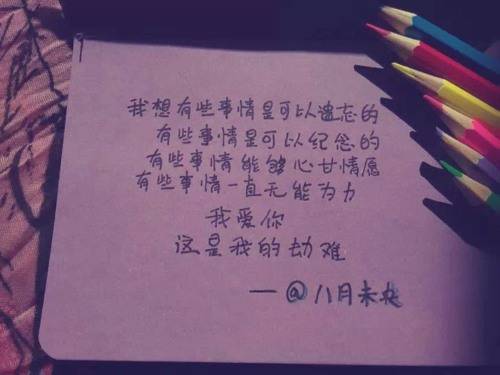 我想有些事情是可以遗忘的
有些事情是可以纪念的
有些事情能够心甘情愿
有些事情一直无能为力
我爱你
这是我的劫难
—@八月未央